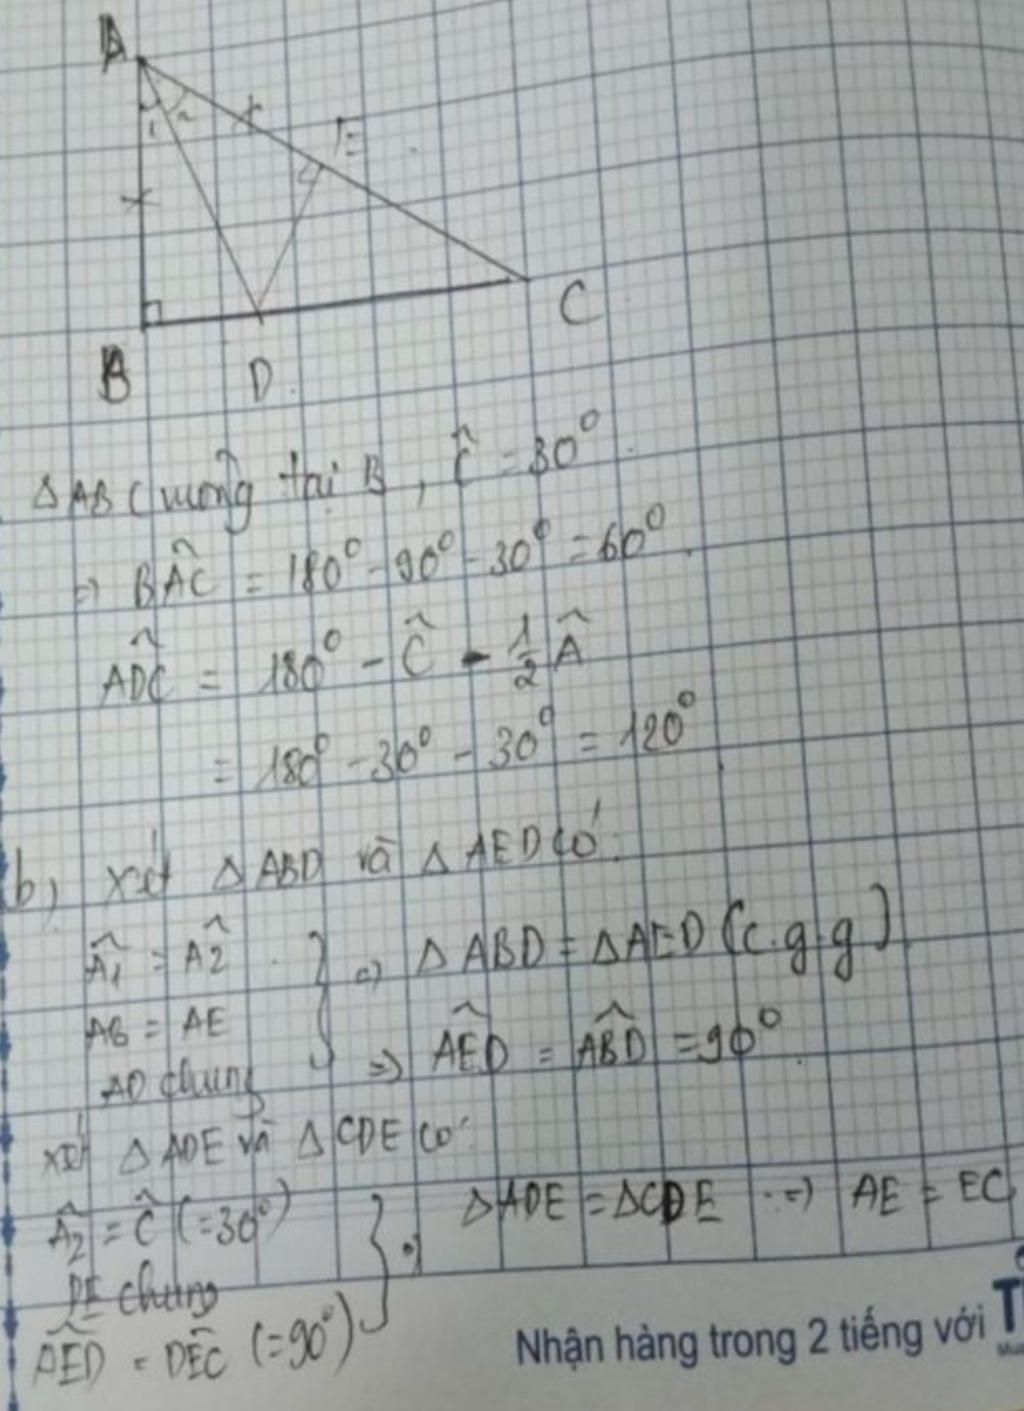 A
1 2
E
C
B D
Δ ABC vuông tại B, Ĉ = 30°.
=> BÂC = 180° - 90° - 30° = 60°.
AD̂C = 180° - Ĉ - 1/2 Â
= 180° - 30° - 30° = 120°
b) xét Δ ABD và Δ AED có:
Â1 = Â2
AB = AE
AD chung
} => Δ ABD = Δ AED (c.g.g)
=> AÊD = AB̂D = 90°.
xét Δ ADE và Δ CDE có:
Â2 = Ĉ (=30°)
DE chung
AÊD = DÊC (=90°)
} => Δ ADE = Δ CDE => AE = EC
Nhận hàng trong 2 tiếng với